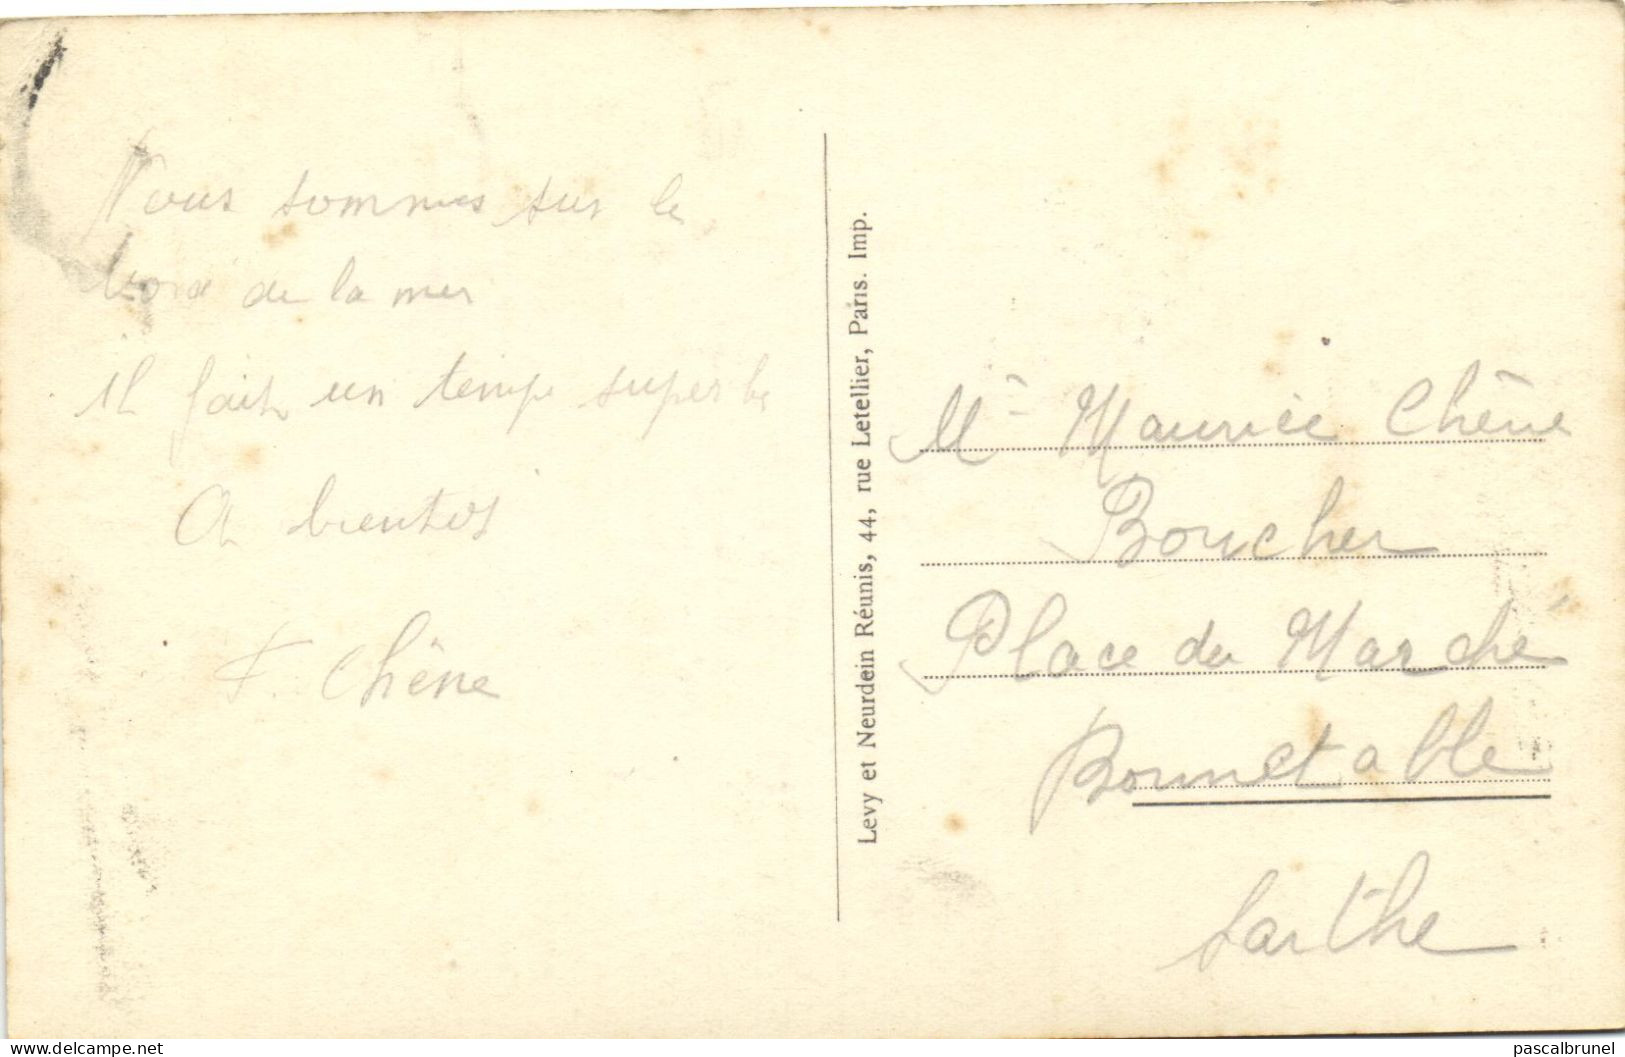 Nous sommes sur le
bord de la mer
il fait un temps superbe
A bientot
F. Chêne
Levy et Neurdein Réunis, 44, rue Letellier, Paris. Imp.
Mr Maurice Chêne
Boucher
Place du Marché
Bonnetable
Sarthe
www.delcampe.net
pascalbrunel